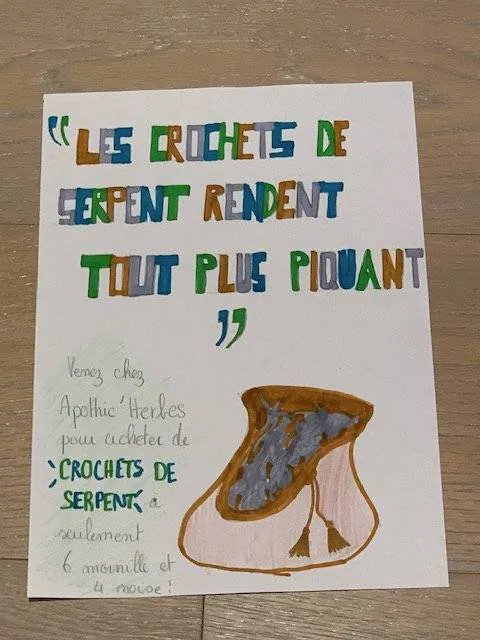 “ LES CROCHETS DE
SERPENT RENDENT
TOUT PLUS PIQUANT
”
Venez chez
Apothic'Herbes
pour acheter de
CROCHETS DE
SERPENT à
seulement
6 mornille et
4 noise !